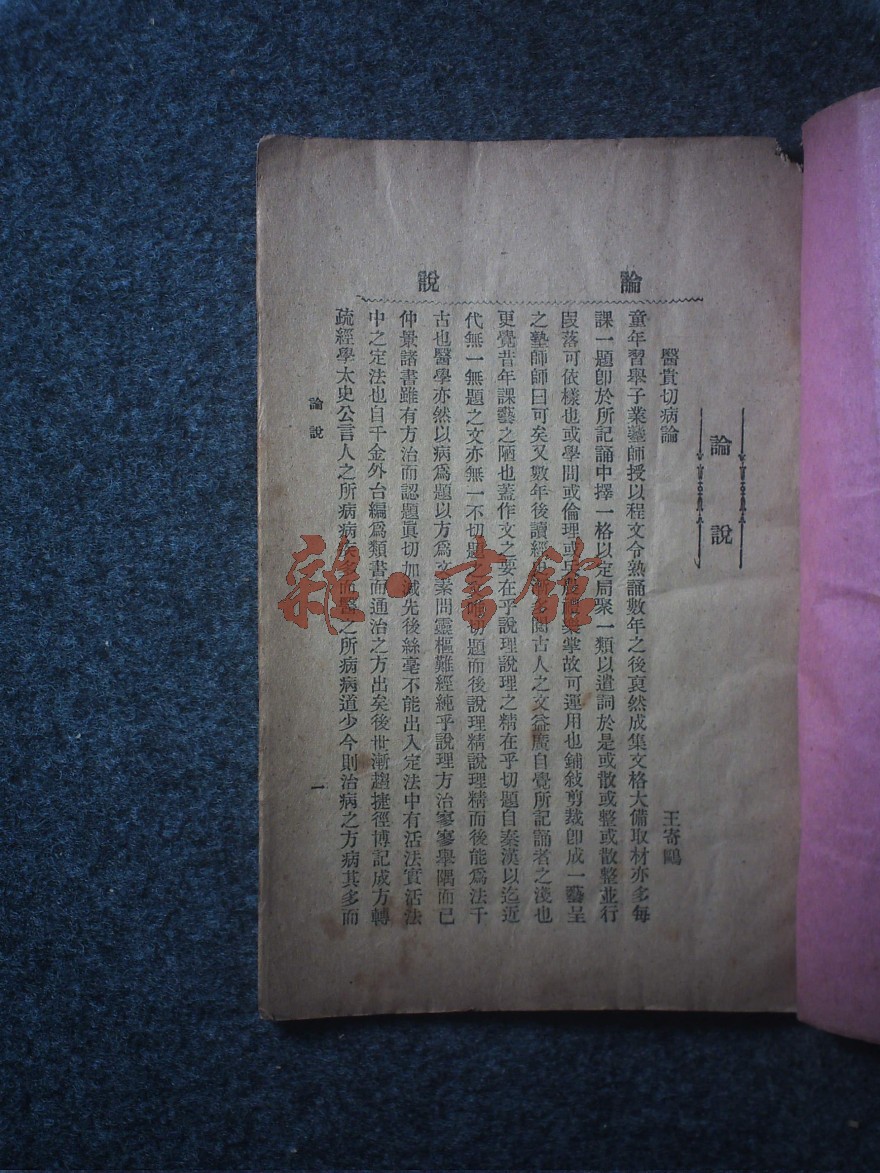 論說
論說
醫貴切病論 王寄鷗
童年習舉子業塾師授以程文令熟誦數年之後裒然成集文格大備取材亦多每
課一題卽於所記誦中擇一格以定局聚一類以遣詞於是或散或整或散整並行
段落可依樣也或學問或倫理或兵農禮樂掌故可運用也鋪敍剪裁卽成一藝呈
之塾師師曰可矣又數年後讀經史閱古人之文益廣自覺所記誦者之淺也
更覺昔年課藝之陋也蓋作文之要在乎說理說理之精在乎切題自秦漢以迄近
代無一無題之文亦無一不切題之唯切題而後說理精說理精而後能爲法千
古也醫學亦然以病爲題以方爲文素問靈樞難經純乎說理方治寥寥舉隅而已
仲景諸書雖有方治而認題眞切加減先後絲毫不能出入定法中有活法實活法
中之定法也自千金外台編爲類書而通治之方出矣後世漸趨捷徑博記成方轉
疏經學太史公言人之所病病疾多而醫之所病病道少今則治病之方病其多而
論說 一
雜·書館